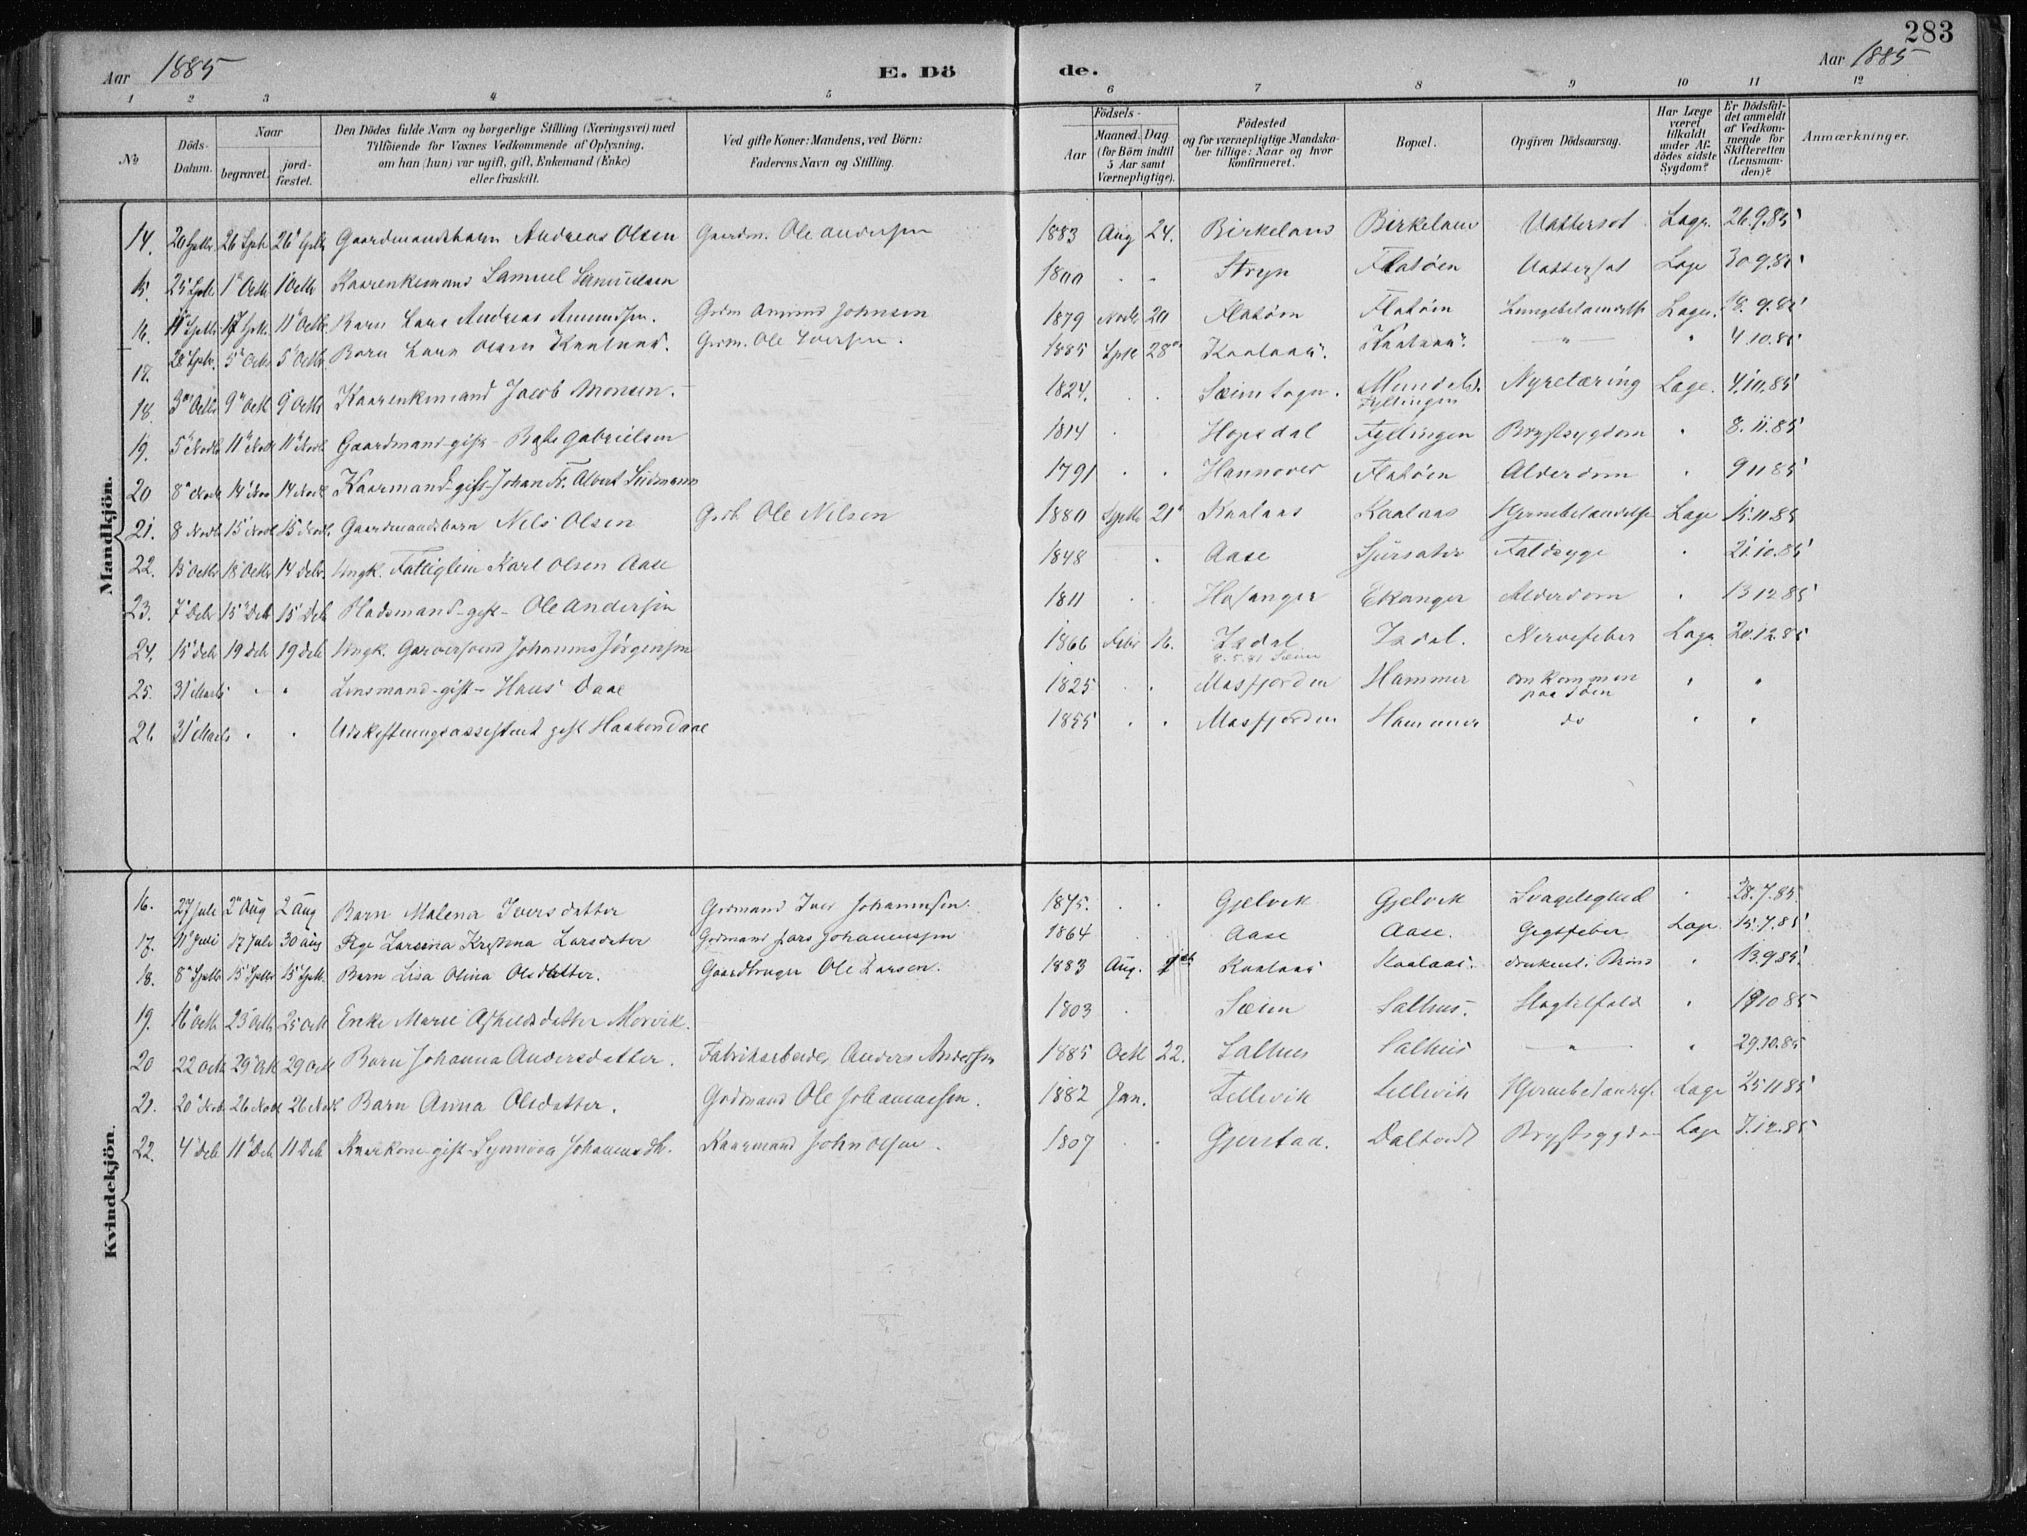 283
Aar 1885 E. Dö de. Aar 1885
1 2 3 4 5 6 7 8 9 10 11 12
No
Döds-Datum.
Naar
begravet. jord-fæstet.
Den Dödes fulde Navn og borgerlige Stilling (Næringsvei) med
Tilföiende for Voxnes Vedkommende af Oplysning,
om han (hun) var ugift, gift, Enkemand (Enke)
eller fraskilt.
Ved gifte Koner: Mandens, ved Börn:
Faderens Navn og Stilling.
Födsels-
Aar Maaned. Dag
(for Börn indtil
5 Aar samt
Værnepligtige).
Födested
og for værnepligtige Mandska-
ber tillige: Naar og hvor
konfirmeret.
Bopæl.
Opgiven Dödsaarsag.
Har Læge
været
tilkaldt
under Af-
dödes sidste
Sygdom?
Er Dödsfal-
det anmeldt
af Vedkom-
mende for
Skifteretten
(Lensman-
den)?
Anmærkninger.
Mandkjön.
14. 20 Septbr 26 Septb 26 Septbr Gaardmandsbarn Andreas Olsen Gaardm. Ole Andersen 1883 Aug 24. Birkeland Birkeland Vattersot Læge 26.9.85
15. 25 Septbr 1 Octbr 1 Octbr Kaarenkemand Samuel Samuelsen 1800 Stryn Flatøen Vattersot Læge 30.9.85
16. 11 Septbr 17 Septbr 11 Octbr Barn Lars Andreas Amundsen. Gdm Amund Johnsen 1879 Novbr 20 Flatøen Flatøen Lungebetændelse Læge. 18.9.85
17. 28 Septbr. 5 Octbr 5 Octbr Barn Lars Olsen Kaalaas. Gdm. Ole Iversen. 1885 Septb 28 Kaalaas. Kaalaas. " " 4.10.85
18. 3 Octbr 9 Octb 9 Octbr Kaarenkemand Jacob Monsen. 1824. Sæim Sogn. Mundal Fyllingen Nyretæring Læge. 4.10.85
19. 5 Novbr 11 Novb 11 Novb Gaardmand-gift- Gabrielsen 1814 Hopsdal Fyllingen Brystsygdom " 8.11.85
20 8 Novbr 14 Nov 14 Novb Kaarmand-gift-Johan Fr. Albert 1791 Hannover Flatøen Alderdom " 9.11.85
21. 8 Novbr 15 Novb 15 Novb. Gaardmandsbarn Nels Olsen Grdb. Ole Nilsen 1880 Septbr 21 Kaalaas Kaalaas Hjernebetændelse Læge 15.11.85
22. 15 Octbr 18 Octbr 14 Debr. Ungk. Fattiglem Karl Olsen Aase 1848 Aase Faldsyge " 21.10.85
23. 7 Debr 15 Deb 15 Deb Pladsmand-gift- Ole Andersen 1811 Hosanger Ekanger Alderdom " 13.12.85
24. 15 Debr 19 Deb 19 Deb Ungk. Garversvend Johannes Jørgensen 1866 Febr 16. Isdal 8.5.81 Sæim Isdal. Nervefeber Læge 20.12.85
25. 31 Marts " " Lensmand-gift- Hans Daae 1825 Masfjorden Hammer omkommen paa Søen " "
26 31 Marts " " Udskiftningsassistent gift Haakon Daae 1855 Masfjorden Hammer do " "
Kvindekjön.
16. 27 Juli 2 Aug 2 Aug Barn Malena Iversdatter Grdmand Iver Johannesen. 1875. Gjelvik Gjelvik Svagelighed " 28.7.85.
17. 11 Juli 17 Juli 30 Aug Pige Larsina Kristina Larsdatter Grdmand Lars Johannessen 1864 Aase Aase. Gigtfeber Læge 15.7.85
18. 8 Septbr 15 Septbr 15 Septb. Barn Lisa Olina Olsdatter. Gaardbruger Ole Larsen. 1883 Aug. Kaalaas Kaalaas. druknet i Brønd " 13.9.85
19. 16 Octbr 23 Octbr 25 Octb Enke Marie Morvik. 1803 Sæim Salhus. Slagtilfald " 19.10.85
20 22 Octb 29 Octb 29 Octb Barn Johanna Andersdatter. Fabrikarbeider Anders Andersen 1885 Octb 22. Salhus Salhus " " 29.10.85
21. 20 Novb. 26 Novb 26 Novb Barn Anna Olsdatter. Grdmand Ole Johannessen. 1882 Jan. Tellevik Tellevik Hjernebetændelse Læge 25.11.85
22. 4 Deb 11 Deb 11 Deb Kaarkone-gift- Synnova Johannesdtr. Kaarmand John Olsen. 1807 Gjerstad. Daltvedt Brystsygdom Læge 7.12.85